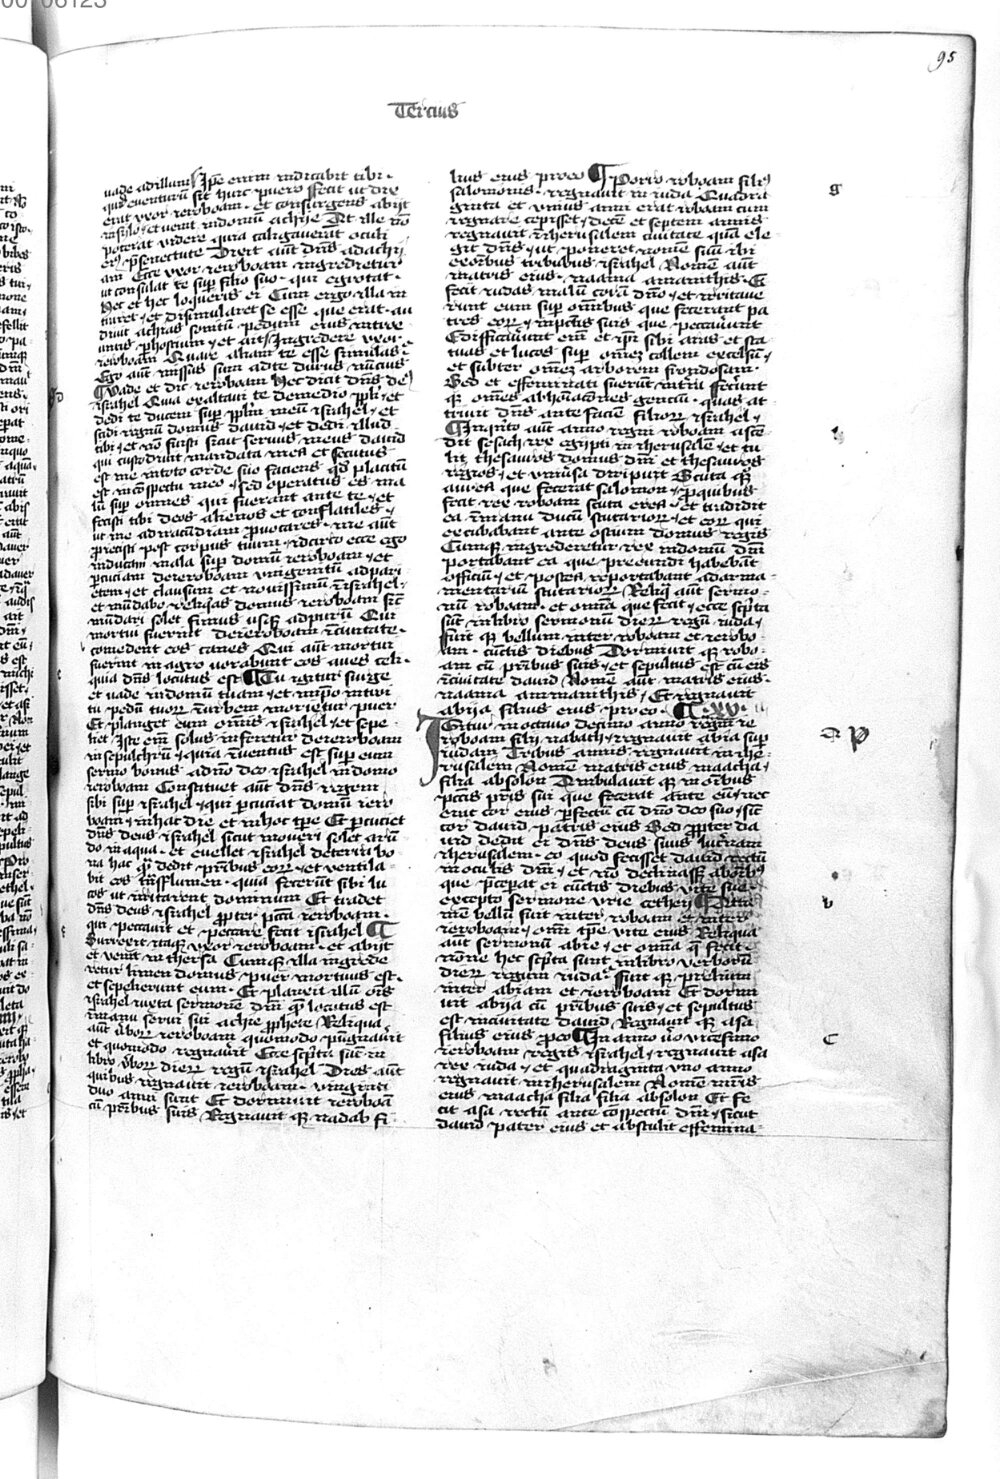 95
Tercius
vade ad illum Ip̄e enim indicabit tibi ·
quid euenturū sit huic puero ffecit ut dix
erat vxor ieroboam · et consurgens abijt
in silo / et venit in domū achije At ille nō
poterat videre quia caligauerāt oculi
eiꝰ p̄ senectute Dixit aūt dn̄s ad achij
am Ecce vxor ieroboam ingredietur
ut consulat te sup̄ filio suo · qui egrotat ·
hec et hec loqueris ei Cum ergo illa in
traret · et dissimularet se esse que erat · au
diuit achias sonitū pedum eius introe
untis p̄ hostium / et ait / Ingredere vxor
ieroboam Quare aliam te esse simulas ·
Ego aūt missus sum ad te durus nūcius
¶ Vade et dic ieroboam hec dicit dn̄s deꝰ
israhel Quia exaltaui te de medio ppl̄i · et
dedi te ducem sup̄ ppl̄m meū israhel / et
scidi regnū domus dauid · et dedi illud
tibi / et nō fuisti sicut seruus meus dauid
qui custodiuit mandata mea et secutus
est me in toto corde suo faciens qd̄ placitū
est in cōspectu meo / sed operatus es ma
lū sup̄ omnes qui fuerunt ante te · et
fecisti tibi deos alienos et conflatiles ·
ut me ad iracūdiam ꝓuocares · me aūt
ꝓiecisti post corpus tuum / idcirco ecce ego
inducam mala sup̄ domū ieroboam / et
ꝑcutiam de ieroboam mingentū ad pari
etem / et clausum et nouissimū ī israhel ·
et mūdabo reliqͥas domus ieroboam sic̄
mūdari solet fimus usqꝫ ad purū Qui
mortui fuerint de ieroboam ī ciuitate ·
comedent eos canes Qui aūt mortui
fuerint in agro uorabunt eos aues celi ·
quia dn̄s locutus est ¶ Tu igitur surge
et uade in domū tuam / et in ip̄o introi
tu pedū tuorꝝ ī urbem morietur puer
Et planget eum omnis israhel / et sepe ·
liet Iste em̄ solus inferetur de ieroboam
in sepulchrū / quia īuentus est sup̄ eum
sermo bonus a dn̄o deo israhel in domo
ieroboam Constituet aūt dn̄s regem
sibi sup̄ israhel / qui ꝑcutiat domū iero
boam / in hac die et in hoc tꝑe Et ꝑcutiet
dn̄s deus israhel sicut moueri solet arū
do in aqua · et euellet israhel de terra bo
na hac quā dedit pr̄ibus eorꝝ · et ventila ·
bit eos tn̄s flumen · quia fecerūt sibi lu
cos ut irritarent dominum Et tradet
dn̄s deus israhel ꝓpter pc̄m ieroboam ·
qui peccauit et peccare fecit israhel ¶
Surrexit itaqꝫ vxor ieroboam · et abijt
et venit in thersa Cumqꝫ illa ingrede
retur limen domus / puer mortuus est ·
et sepelierunt eum · Et planxit illū oīs
israhel iuxta sermonē dn̄i quē locutus est
ī manu serui sui achie ꝓphete Reliqua
aūt v̄borꝝ ieroboam quomodo pugnauit
et quomodo regnauit Ecce scp̄ta sūt in
libro v̄borꝝ dierꝝ regū israhel Dies aūt
quibus regnauit ieroboam · viginti
duo anni sunt Et dormiuit ieroboā
cū pr̄ibus suis Regnauit qꝫ nadab fi
lius eius pro eo ¶ Porro roboam filiꝰ
salomonis · regnauit in iuda Quadra
ginta et vnius anni erat roboam cum
regnare cepisset / decē et septem annis
regnauit ī iherusalem ciuitate quā ele
git dn̄s / ut poneret nomē suū ibi
ex oībus tribubus israhel Nomē aūt
matris eius · naama amanitis · Et
fecit iudas malū corā dn̄o / et irritaue
runt eum sup̄ omībus que fecerunt pa
tres eorꝝ / in pctīs suis que peccauerūt
Edificauerūt em̄ et ip̄i sibi aras et sta
tuas et lucos sup̄ omēꝫ collem excelsū /
et subter omēꝫ arborem frondosam ·
Sed et effeminati fuerūt in tra fecerūt
qꝫ omēs abhoīacōnes gentiū · quas at
triuit dn̄s ante faciē filiorꝝ israhel /
¶ In qͥnto aūt anno regni roboam ascē
dit sesach rex egypti in iherusalē / et tu
lit thesauros domus dn̄i et thesauros
regios / et vniūsa diripuit Scuta qꝫ
aurea que fecerat salomon / ꝓ quibus
fecit rex roboam scuta erea / et tradidit
ea ī manu ducū scutariorꝝ / et eorꝝ qui
excubabant ante ostium domus regis
Cumqꝫ ingrederetur rex in domū dn̄i
portabant ea que preeundi habebāt
officiū / et postea reportabant ad arma ·
mentariū scutariorꝝ Reliqͣ aūt sermo ·
nū roboam · et omīa que fecit / ecce scp̄ta
sūt in libro sermonū dierꝝ regū iuda /
fuit qꝫ bellum inter roboam et ierobo ·
am · cūctis diebus Dormiuit qꝫ robo ·
am cū pr̄ibus suis / et sepultus est cū eis
ī ciuitate dauid Nomē aūt matris eius ·
naama ammanithis / Et regnauit
abya filius eius pro eo · ¶ · xv ·
IGitur in octauo decimo anno regni ie
roboam filij nabath / regnauit abia sup̄
iudam Tribus annis regnauit in ihe ·
rusalem Nomē matris eius maacha /
filia absolon Ambulauit qꝫ in oībus
pctīs pris sui que fecerat ante eū / nec
erat cor eius ꝑfectū cū dn̄o deo suo / sic̄
cor dauid / patris eius Sed ꝓpter da
uid dedit ei dn̄s deus suus lucernam
iherusalem · eo quod fecisset dauid rectū
in oculis dn̄i / et nō declinasꝫ ab oībꝰ
que p̄cepat ei cūctis diebus vite sue ·
excepto sermone vrie cethey ¶ Atta
mē bellū fuit inter roboam et inter
ieroboam / omī tꝑe vite eius Reliqua
aūt sermonū abie / et omīa q̄ fecit ·
nōne hec scp̄ta sunt in libro verborū
dierꝝ regum iuda · fuit qꝫ prelium
inter abiam et ieroboam Et dormi
uit abya cū pr̄ibus suis / et sepultus
est in ciuitate dauid Regnauit qꝫ asa
filius eius ꝓ eo ¶ In anno uo vicesimo
ieroboam regis israhel / regnauit asa
rex iuda · et quadraginta vno anno
regnauit in iherusalem Nomē mr̄is
eius maacha filia filia absolon Et fe
cit asa rectū ante cōspectū dn̄i / sicut
dauid pater eius et abstulit effemina ·